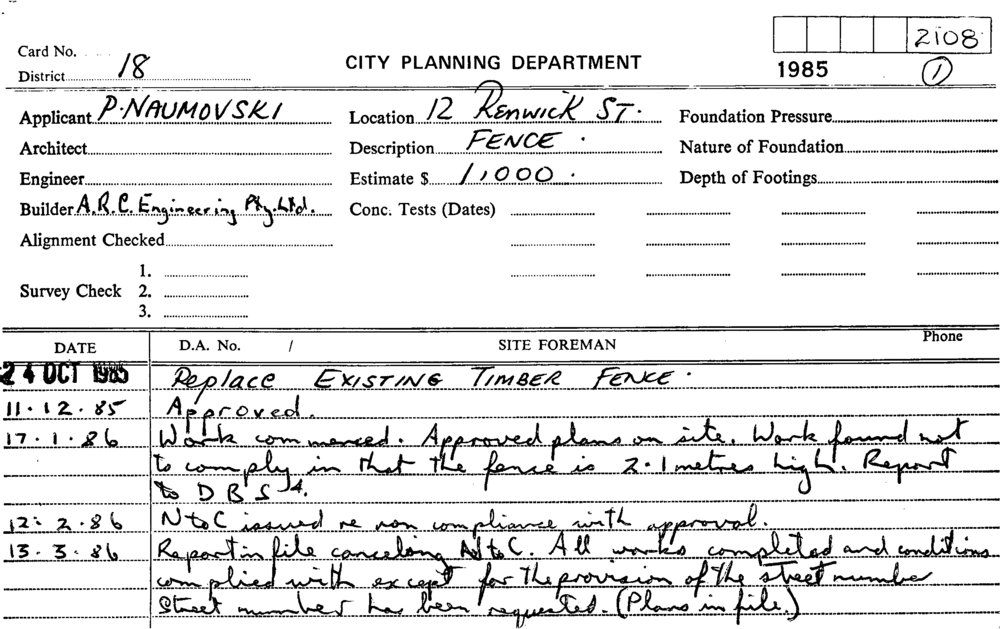 Card No.
2108
District 18
CITY PLANNING DEPARTMENT
1985
1
Applicant P. NAUMOVSKI
Location 12 RENWICK ST.
Foundation Pressure
Architect
Description FENCE.
Nature of Foundation
Engineer
Estimate $ 1,000.
Depth of Footings
Builder A.R.C. Engineering Pty. Ltd.
Conc. Tests (Dates)
Alignment Checked
1.
Survey Check 2.
3.
DATE D.A. No. / SITE FOREMAN Phone
24 OCT 1985 Replace EXISTING TIMBER FENCE.
11.12.85 Approved.
17.1.86 Work commenced. Approved plans on site. Work found not
to comply in that the fence is 2.1 metres high. Report
to DBS
12.2.86 NtoC issued re non compliance with approval.
13.3.86 Report in file canceling NtoC. All works completed and conditions
complied with except for the provision of the street number
Street number has been requested. (Plans in file.)